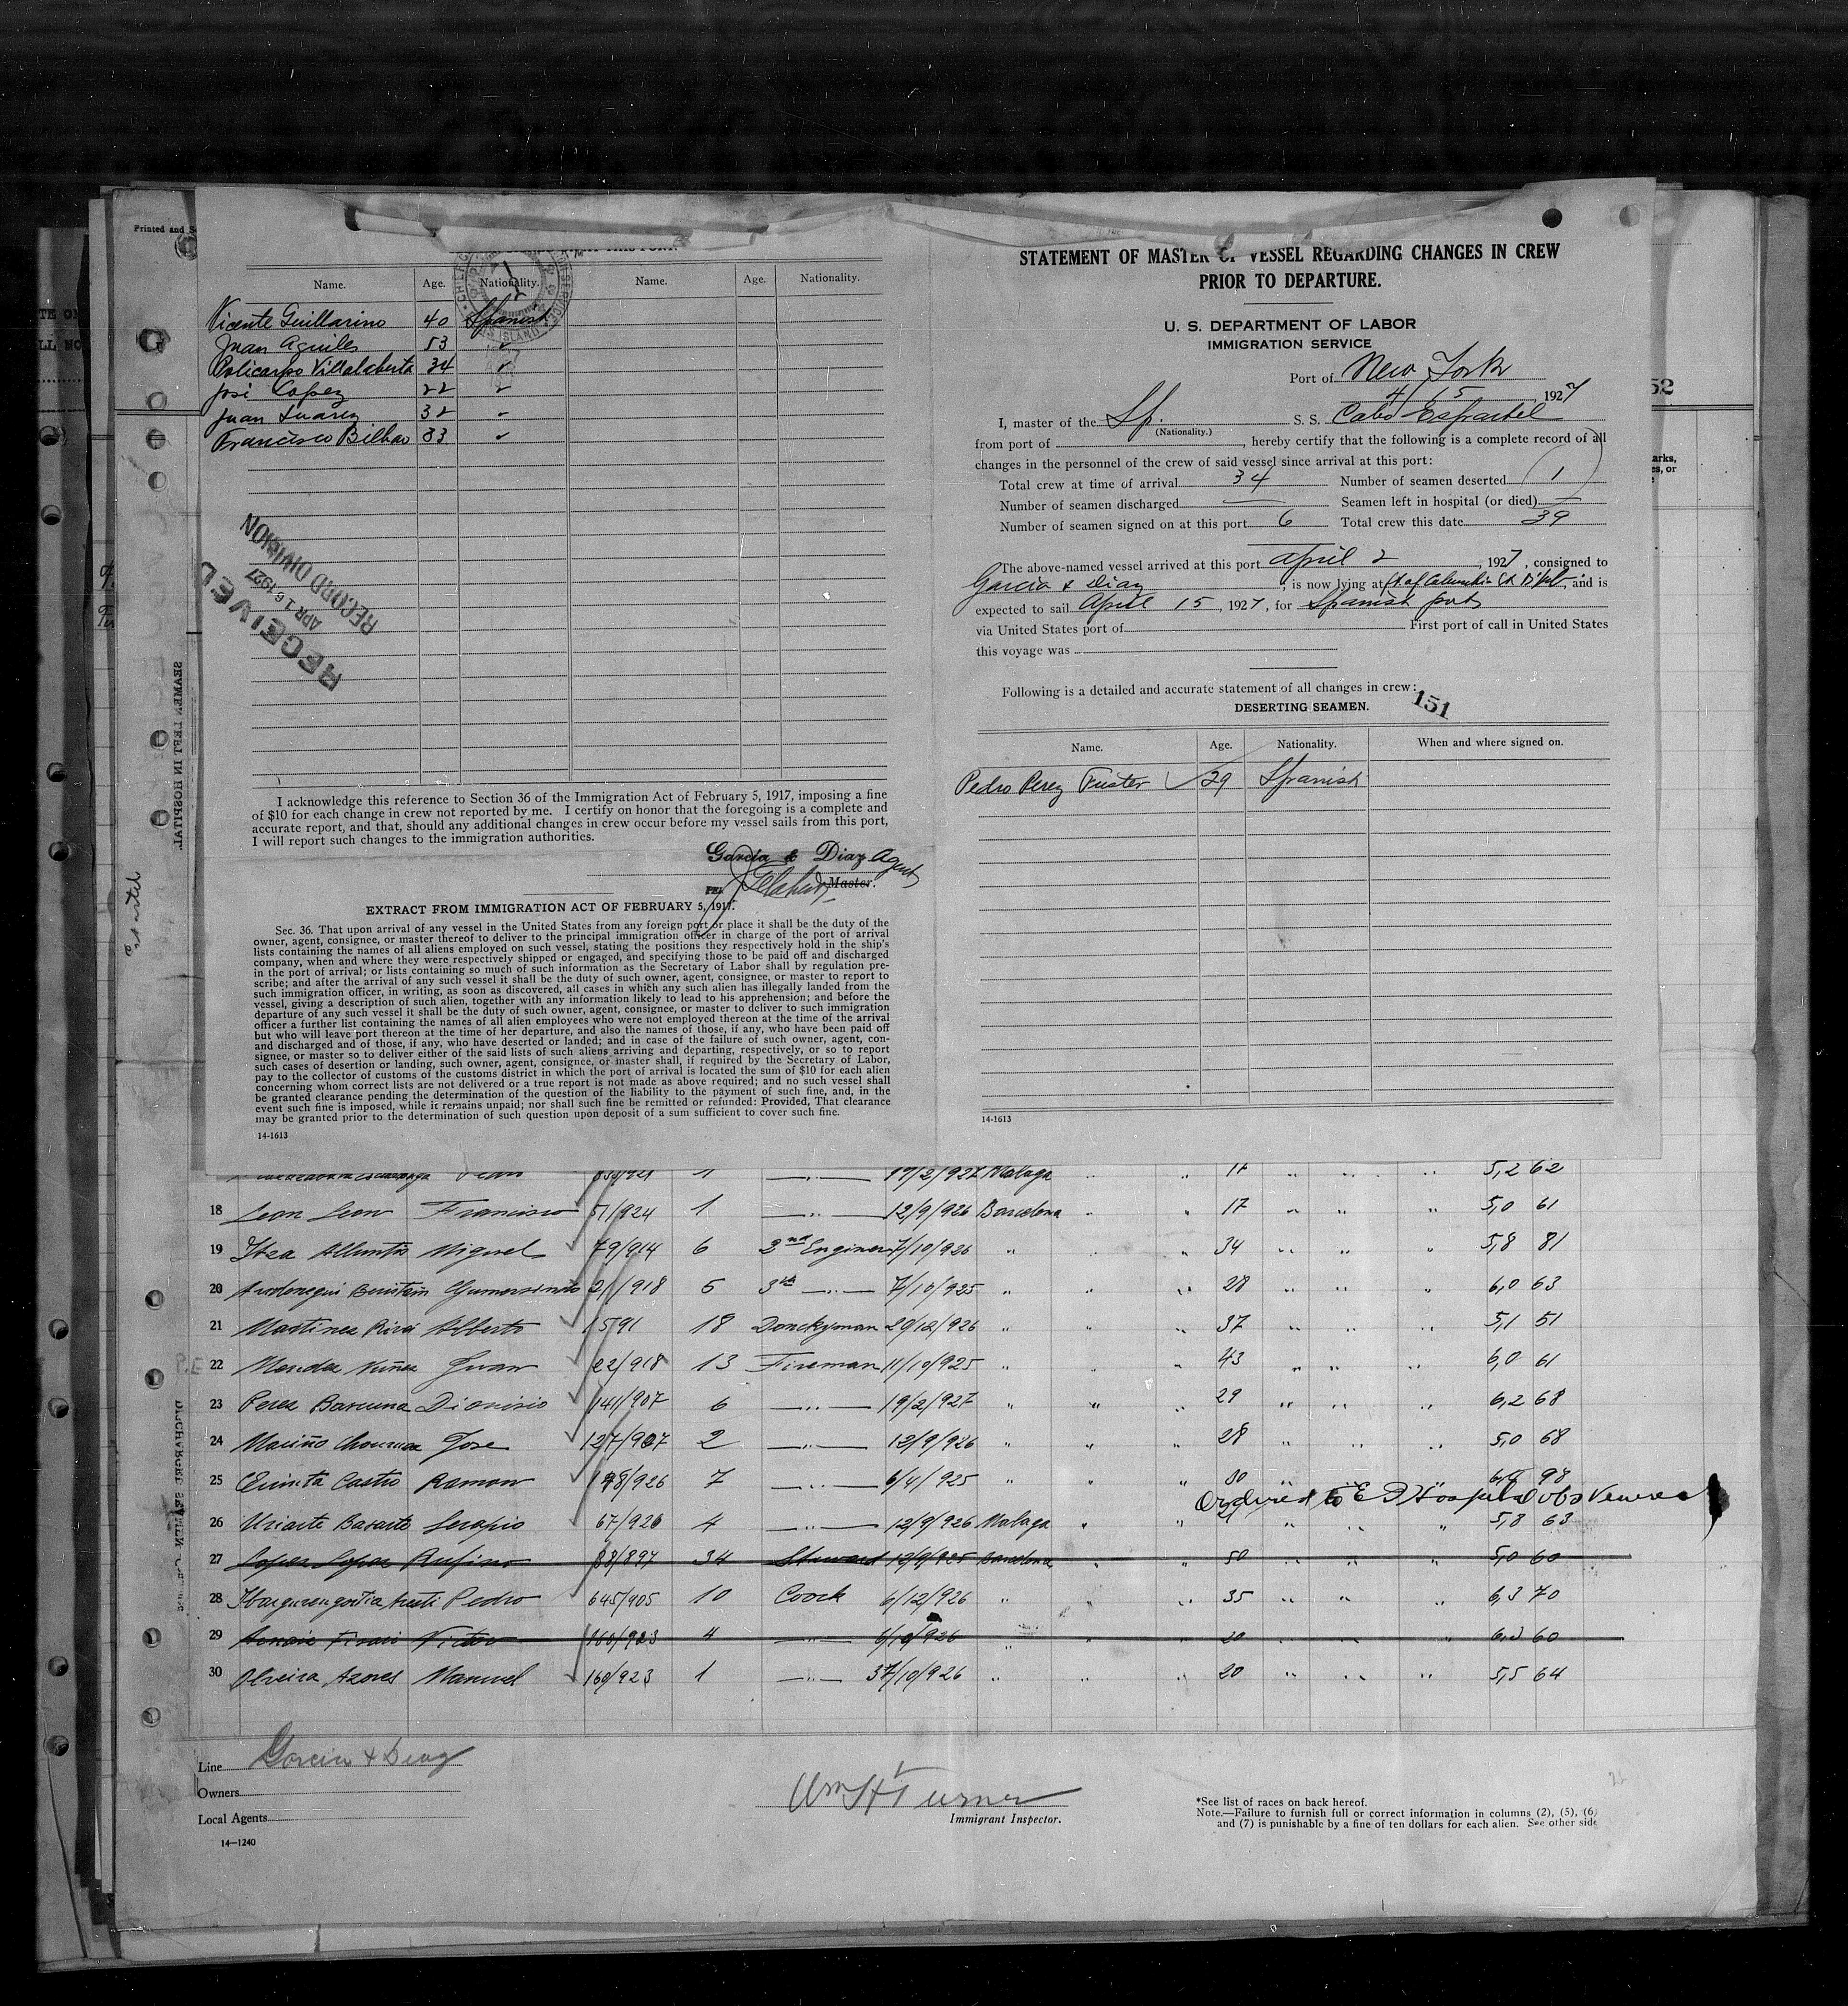 Printed and
Name. Age. Nationality. Name. Age. Nationality.
Vicente Guillarino 40 Spanish
Juan Aguiles 53 "
Policarpo Villalaberta 34 "
José Lopez 22 "
Juan Suarez 32 "
Francisco Bilbao 33 "
RECEIVED
APR 16 1927
RECORD DIVISION
I acknowledge this reference to Section 36 of the Immigration Act of February 5, 1917, imposing a fine
of $10 for each change in crew not reported by me. I certify on honor that the foregoing is a complete and
accurate report, and that, should any additional changes in crew occur before my vessel sails from this port,
I will report such changes to the immigration authorities.
Garcia & Diaz Agent
PER Master.
EXTRACT FROM IMMIGRATION ACT OF FEBRUARY 5, 1917.
Sec. 36. That upon arrival of any vessel in the United States from any foreign port or place it shall be the duty of the
owner, agent, consignee, or master thereof to deliver to the principal immigration officer in charge of the port of arrival
lists containing the names of all aliens employed on such vessel, stating the positions they respectively hold in the ship's
company, when and where they were respectively shipped or engaged, and specifying those to be paid off and discharged
in the port of arrival; or lists containing so much of such information as the Secretary of Labor shall by regulation pre-
scribe; and after the arrival of any such vessel it shall be the duty of such owner, agent, consignee, or master to report to
such immigration officer, in writing, as soon as discovered, all cases in which any such alien has illegally landed from the
vessel, giving a description of such alien, together with any information likely to lead to his apprehension; and before the
departure of any such vessel it shall be the duty of such owner, agent, consignee, or master to deliver to such immigration
officer a further list containing the names of all alien employees who were not employed thereon at the time of the arrival
but who will leave port thereon at the time of her departure, and also the names of those, if any, who have been paid off
and discharged and of those, if any, who have deserted or landed; and in case of the failure of such owner, agent, con-
signee, or master so to deliver either of the said lists of such aliens arriving and departing, respectively, or so to report
such cases of desertion or landing, such owner, agent, consignee, or master shall, if required by the Secretary of Labor,
pay to the collector of customs of the customs district in which the port of arrival is located the sum of $10 for each alien
concerning whom correct lists are not delivered or a true report is not made as above required; and no such vessel shall
be granted clearance pending the determination of the question of the liability to the payment of such fine, and, in the
event such fine is imposed, while it remains unpaid; nor shall such fine be remitted or refunded: Provided, That clearance
may be granted prior to the determination of such question upon deposit of a sum sufficient to cover such fine.
14-1613
STATEMENT OF MASTER OF VESSEL REGARDING CHANGES IN CREW
PRIOR TO DEPARTURE.
U. S. DEPARTMENT OF LABOR
IMMIGRATION SERVICE
Port of New York
4/15, 1927
I, master of the Sp. S. S. Cabo Espartel
(Nationality.)
from port of , hereby certify that the following is a complete record of all
changes in the personnel of the crew of said vessel since arrival at this port:
Total crew at time of arrival 34 Number of seamen deserted 1
Number of seamen discharged — Seamen left in hospital (or died) —
Number of seamen signed on at this port 6 Total crew this date 39
The above-named vessel arrived at this port April 2, 1927, consigned to
Garcia & Diaz, is now lying at ft of Columbia St Bklyn, and is
expected to sail April 15, 1927, for Spanish ports
via United States port of First port of call in United States
this voyage was
Following is a detailed and accurate statement of all changes in crew:
151
DESERTING SEAMEN.
Name. Age. Nationality. When and where signed on.
Pedro Perez Fuster 29 Spanish
14-1613
52
SEAMEN LEFT IN HOSPITAL
17/2/927 Malaga " " 17 " " " 5,2 62
18 Leon Leon Francisco 51/924 1 —"— 12/9/926 Barcelona " " 17 " " " 5,0 61
19 Miguel 79/914 6 2nd Engineer 7/10/926 " " " 34 " " " 5,8 81
20 Gumersindo 21/918 5 3th —"— 7/10/925 " " " 28 " " " 6,0 63
21 Martinez Alberto 1591 18 Donckyman 29/12/926 " " " 37 " " " 5,1 51
22 Mendez Nuñez Juan 22/918 13 Fireman 11/10/925 " " " 43 " " " 6,0 61
23 Perez Barcena Dionisio 141/907 6 —"— 19/2/927 " " " 29 " " " 6,2 68
24 Mariño Jose 127/907 2 —"— 12/9/926 " " " 28 " " " 5,0 68
25 Castro Ramon 198/926 7 —"— 6/4/925 " " " 30 " " " 98
Ordered to E I Hospital obs Venereal
26 Uriarte Basarte Serapio 67/926 4 —"— 12/9/926 Malaga " " " " " 5,8 63
27 Lopez Lopez Rufino 88/897 34 Steward 12/9/925 Barcelona " " 50 " " " 5,0 60
28 Pedro 645/905 10 Coock 6/12/926 " " " 35 " " " 6,3 70
29 Victor 160/923 4 —"— 6/10/926 " " " 20 " " " 60
30 Oliveira Azores Manuel 160/923 1 —"— 7/10/926 " " " 20 " " " 5,5 64
Line Garcia & Diaz
Owners
Local Agents
14—1240
Wm H Turner
Immigrant Inspector.
*See list of races on back hereof.
Note.—Failure to furnish full or correct information in columns (2), (5), (6)
and (7) is punishable by a fine of ten dollars for each alien. See other side